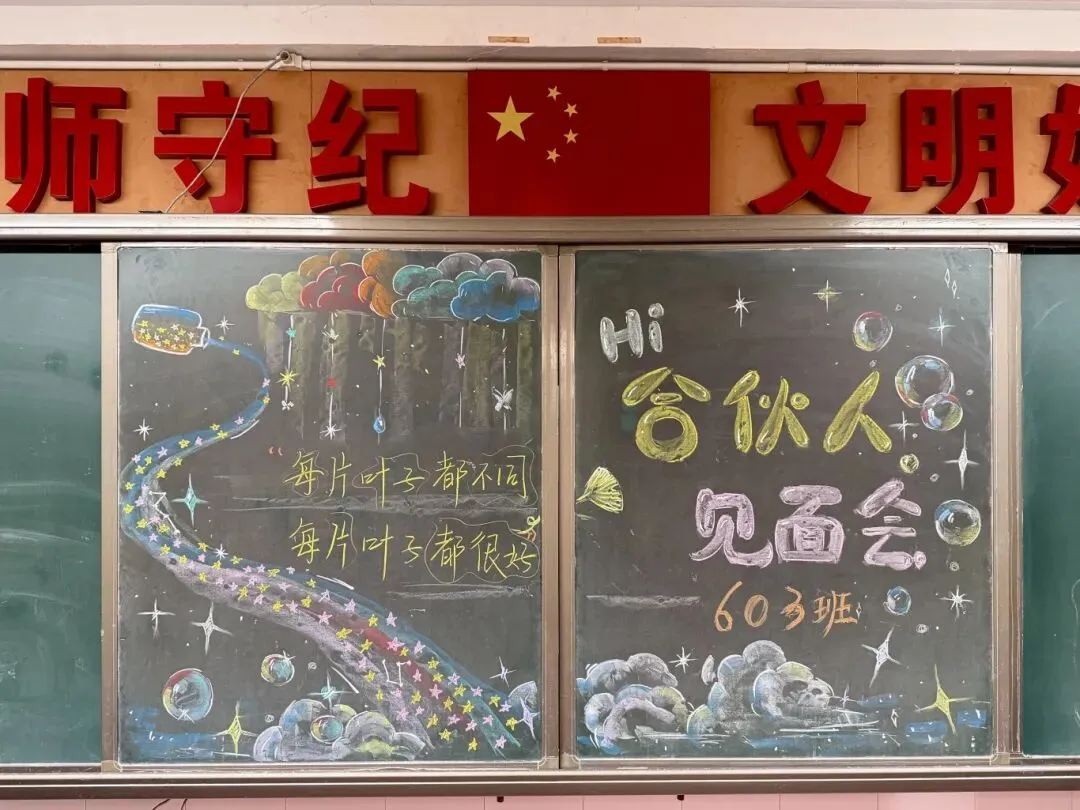 师守纪 文明
每片叶子都不同
每片叶子都很好
Hi
合伙人
见面会
603班